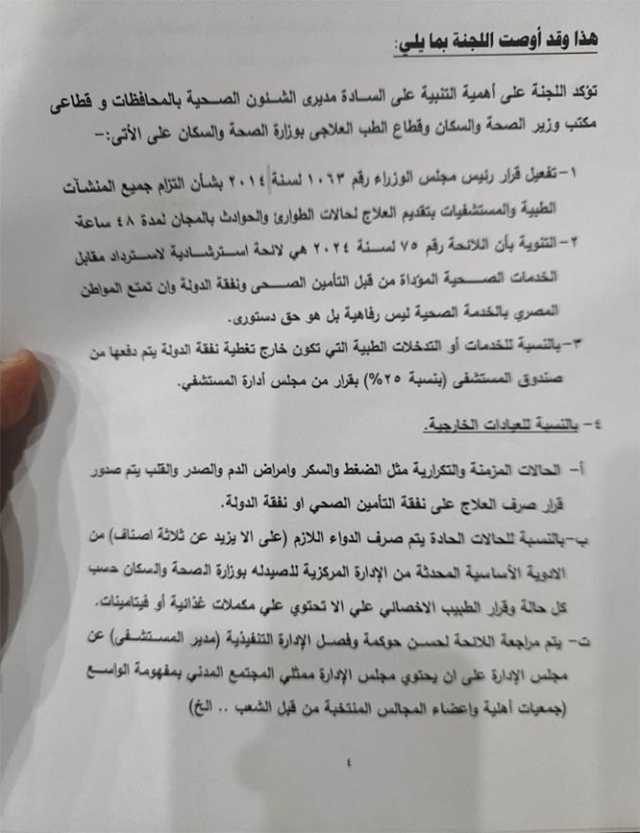 هذا وقد أوصت اللجنة بما يلي:
تؤكد اللجنة على أهمية التنبية على السادة مديرى الشئون الصحية بالمحافظات و قطاعى
مكتب وزير الصحة والسكان وقطاع الطب العلاجى بوزارة الصحة والسكان على الأتى:-
١- تفعيل قرار رئيس مجلس الوزراء رقم ١٠٦٣ لسنة ٢٠١٤ بشأن التزام جميع المنشآت
الطبية والمستشفيات بتقديم العلاج لحالات الطوارئ والحوادث بالمجان لمدة ٤٨ ساعة
٢- التنوية بأن اللائحة رقم ٧٥ لسنة ٢٠٢٤ هي لائحة استرشادية لاسترداد مقابل
الخدمات الصحية المؤداة من قبل التأمين الصحى ونفقة الدولة وان تمتع المواطن
المصري بالخدمة الصحية ليس رفاهية بل هو حق دستورى.
٣- بالنسبة للخدمات أو التدخلات الطبية التي تكون خارج تغطية نفقة الدولة يتم دفعها من
صندوق المستشفى (بنسبة ٢٥%) بقرار من مجلس أدارة المستشفي.
٤- بالنسبة للعيادات الخارجية.
أ- الحالات المزمنة والتكرارية مثل الضغط والسكر وامراض الدم والصدر والقلب يتم صدور
قرار صرف العلاج على نفقة التأمين الصحي او نفقة الدولة.
ب- بالنسبة للحالات الحادة يتم صرف الدواء اللازم (على الا يزيد عن ثلاثة اصناف) من
الادوية الأساسية المحدثة من الإدارة المركزية للصيدله بوزارة الصحة والسكان حسب
كل حالة وقرار الطبيب الاخصائي علي الا تحتوي علي مكملات غذائية أو فيتامينات.
ت- يتم مراجعة اللائحة لحسن حوكمة وفصل الإدارة التنفيذية (مدير المستشفى) عن
مجلس الإدارة على ان يحتوي مجلس الإدارة ممثلي المجتمع المدني بمفهومة الواسع
(جمعيات أهلية واعضاء المجالس المنتخبة من قبل الشعب .. الخ)
٤